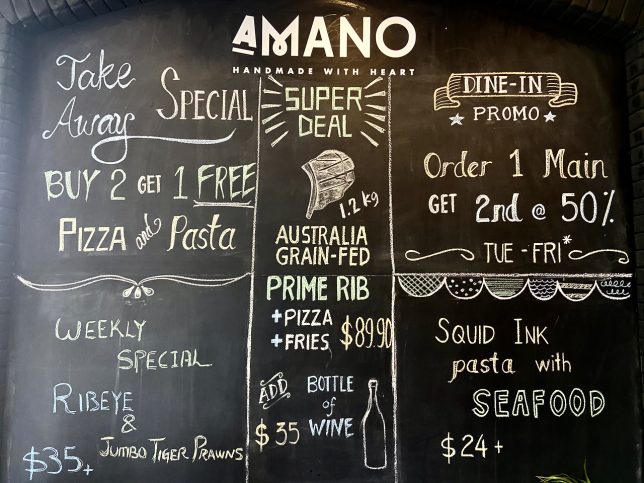 AMANO
HANDMADE WITH HEART
Take
Away
SPECIAL
BUY 2 GET 1 FREE
PIZZA and Pasta
WEEKLY
SPECIAL
RIBEYE
&
JUMBO TIGER PRAWNS
$35+
SUPER
DEAL
1.2 kg
AUSTRALIA
GRAIN-FED
PRIME RIB
+PIZZA
+FRIES $89.90
ADD
BOTTLE
of
WINE
$35
DINE-IN
PROMO
Order 1 Main
GET 2nd @ 50%
TUE - FRI*
SQUID INK
pasta with
SEAFOOD
$24+